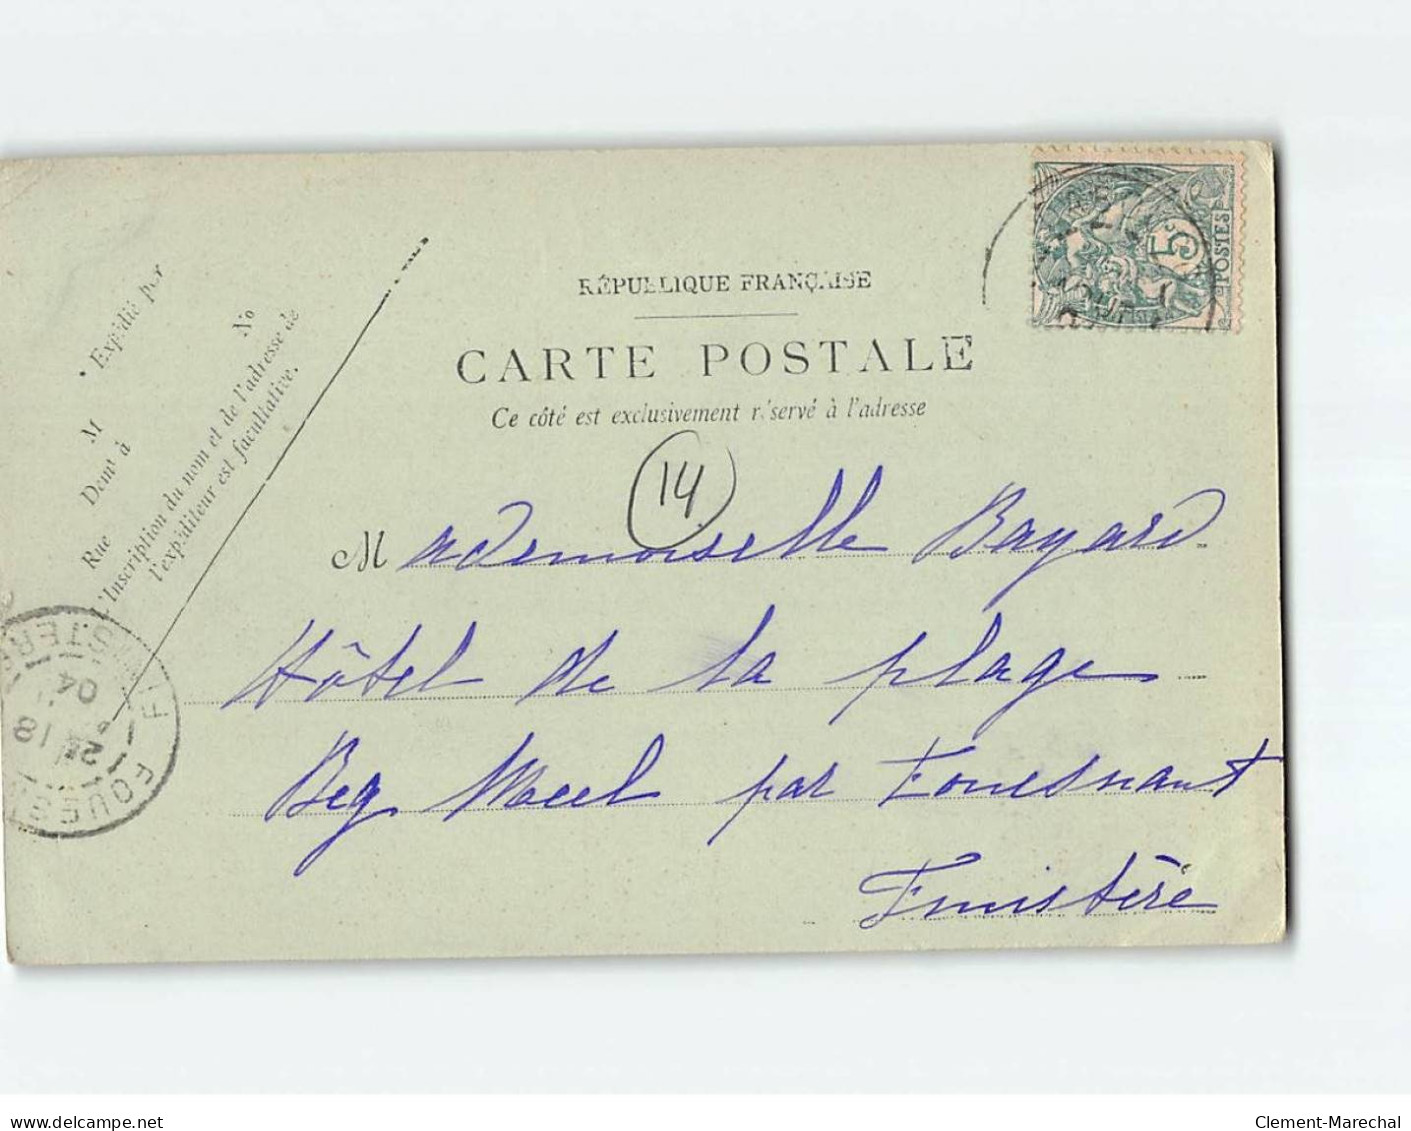 RÉPUBLIQUE FRANÇAISE
CARTE POSTALE
Ce côté est exclusivement réservé à l'adresse
14
Mademoiselle Bayard
Hôtel de la plage
Beg Meil par Fouesnant
Finistère
Expédié par
M
Demt à
Rue
No
L'Inscription du nom et de l'adresse de
l'expéditeur est facultative.
5c
POSTES
FOUES
FINISTERE
18
04
delcampe.net
Clement-Marechal